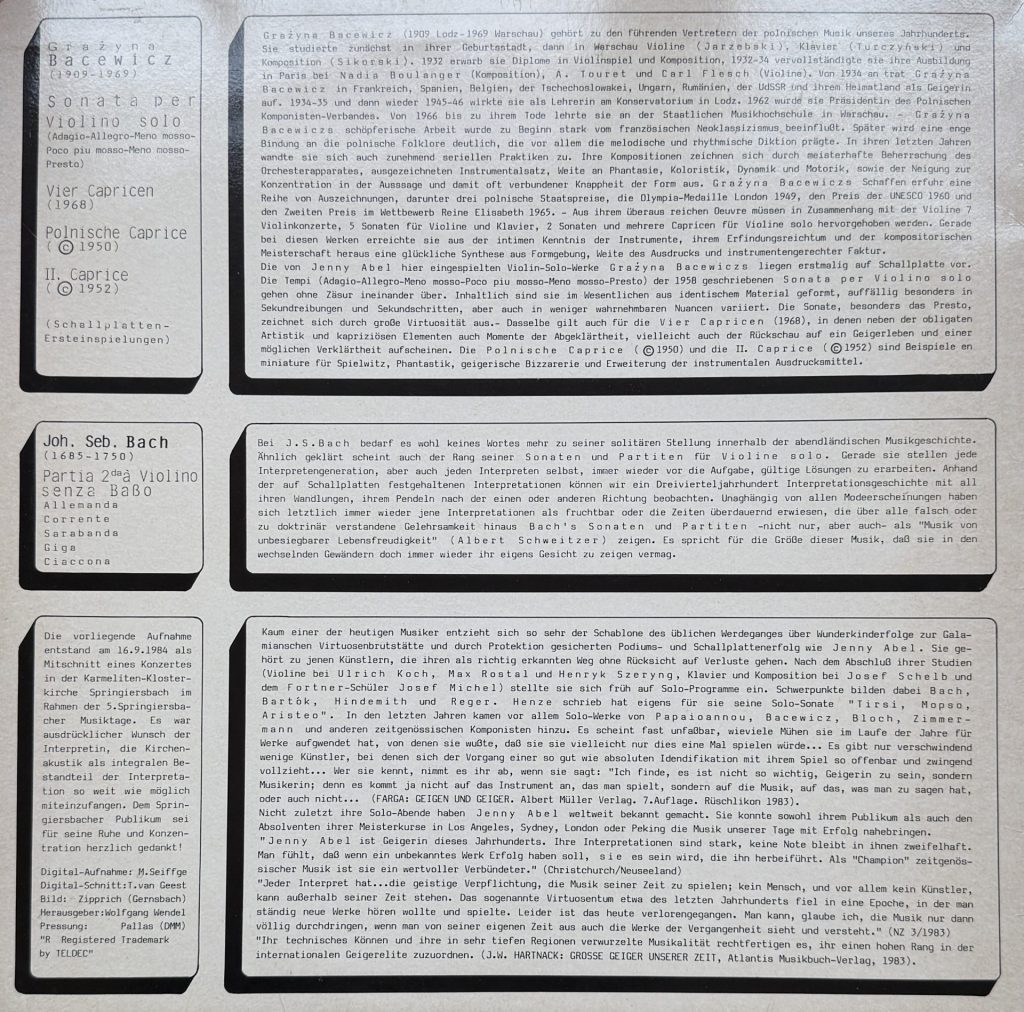 Grażyna
Bacewicz
(1909-1969)
Sonata per
Violino solo
(Adagio-Allegro-Meno mosso-
Poco piu mosso-Meno mosso-
Presto)
Vier Capricen
(1968)
Polnische Caprice
(©1950)
II. Caprice
(©1952)
(Schallplatten-
Ersteinspielungen)
Grażyna Bacewicz (1909 Lodz-1969 Warschau) gehört zu den führenden Vertretern der polnischen Musik unseres Jahrhunderts.
Sie studierte zunächst in ihrer Geburtsstadt, dann in Warschau Violine (Jarzebski), Klavier (Turczyński) und
Komposition (Sikorski). 1932 erwarb sie Diplome in Violinspiel und Komposition, 1932-34 vervollständigte sie ihre Ausbildung
in Paris bei Nadia Boulanger (Komposition), A. Touret und Carl Flesch (Violine). Von 1934 an trat Grażyna
Bacewicz in Frankreich, Spanien, Belgien, der Tschechoslowakei, Ungarn, Rumänien, der UdSSR und ihrem Heimatland als Geigerin
auf. 1934-35 und dann wieder 1945-46 wirkte sie als Lehrerin am Konservatorium in Lodz. 1962 wurde sie Präsidentin des Polnischen
Komponisten-Verbandes. Von 1966 bis zu ihrem Tode lehrte sie an der Staatlichen Musikhochschule in Warschau. - Grażyna
Bacewiczs schöpferische Arbeit wurde zu Beginn stark vom französischen Neoklassizismus beeinflußt. Später wird eine enge
Bindung an die polnische Folklore deutlich, die vor allem die melodische und rhythmische Diktion prägte. In ihren letzten Jahren
wandte sie sich auch zunehmend seriellen Praktiken zu. Ihre Kompositionen zeichnen sich durch meisterhafte Beherrschung des
Orchesterapparates, ausgezeichneten Instrumentalsatz, Weite an Phantasie, Koloristik, Dynamik und Motorik, sowie der Neigung zur
Konzentration in der Ausssage und damit oft verbundener Knappheit der Form aus. Grażyna Bacewiczs Schaffen erfuhr eine
Reihe von Auszeichnungen, darunter drei polnische Staatspreise, die Olympia-Medaille London 1949, den Preis der UNESCO 1960 und
den Zweiten Preis im Wettbewerb Reine Elisabeth 1965. - Aus ihrem überaus reichen Oeuvre müssen in Zusammenhang mit der Violine 7
Violinkonzerte, 5 Sonaten für Violine und Klavier, 2 Sonaten und mehrere Capricen für Violine solo hervorgehoben werden. Gerade
bei diesen Werken erreichte sie aus der intimen Kenntnis der Instrumente, ihrem Erfindungsreichtum und der kompositorischen
Meisterschaft heraus eine glückliche Synthese aus Formgebung, Weite des Ausdrucks und instrumentengerechter Faktur.
Die von Jenny Abel hier eingespielten Violin-Solo-Werke Grażyna Bacewiczs liegen erstmalig auf Schallplatte vor.
Die Tempi (Adagio-Allegro-Meno mosso-Poco piu mosso-Meno mosso-Presto) der 1958 geschriebenen Sonata per Violino solo
gehen ohne Zäsur ineinander über. Inhaltlich sind sie im Wesentlichen aus identischem Material geformt, auffällig besonders in
Sekundreibungen und Sekundschritten, aber auch in weniger wahrnehmbaren Nuancen variiert. Die Sonate, besonders das Presto,
zeichnet sich durch große Virtuosität aus.- Dasselbe gilt auch für die Vier Capricen (1968), in denen neben der obligaten
Artistik und kapriziösen Elementen auch Momente der Abgeklärtheit, vielleicht auch der Rückschau auf ein Geigerleben und einer
möglichen Verklärtheit aufscheinen. Die Polnische Caprice (©1950) und die II. Caprice (©1952) sind Beispiele en
miniature für Spielwitz, Phantastik, geigerische Bizzarerie und Erweiterung der instrumentalen Ausdrucksmittel.
Joh. Seb. Bach
(1685-1750)
Partia 2da â Violino
senza Baßo
Allemanda
Corrente
Sarabanda
Giga
Ciaccona
Bei J.S.Bach bedarf es wohl keines Wortes mehr zu seiner solitären Stellung innerhalb der abendländischen Musikgeschichte.
Ähnlich geklärt scheint auch der Rang seiner Sonaten und Partiten für Violine solo. Gerade sie stellen jede
Interpretengeneration, aber auch jeden Interpreten selbst, immer wieder vor die Aufgabe, gültige Lösungen zu erarbeiten. Anhand
der auf Schallplatten festgehaltenen Interpretationen können wir ein Dreivierteljahrhundert Interpretationsgeschichte mit all
ihren Wandlungen, ihrem Pendeln nach der einen oder anderen Richtung beobachten. Unaghängig von allen Modeerscheinungen haben
sich letztlich immer wieder jene Interpretationen als fruchtbar oder die Zeiten überdauernd erwiesen, die über alle falsch oder
zu doktrinär verstandene Gelehrsamkeit hinaus Bach's Sonaten und Partiten -nicht nur, aber auch- als "Musik von
unbesiegbarer Lebensfreudigkeit" (Albert Schweitzer) zeigen. Es spricht für die Größe dieser Musik, daß sie in den
wechselnden Gewändern doch immer wieder ihr eigens Gesicht zu zeigen vermag.
Die vorliegende Aufnahme
entstand am 16.9.1984 als
Mitschnitt eines Konzertes
in der Karmeliten-Kloster-
kirche Springiersbach im
Rahmen der 5.Springiersba-
cher Musiktage. Es war
ausdrücklicher Wunsch der
Interpretin, die Kirchen-
akustik als integralen Be-
standteil der Interpreta-
tion so weit wie möglich
miteinzufangen. Dem Sprin-
giersbacher Publikum sei
für seine Ruhe und Konzen-
tration herzlich gedankt!
Digital-Aufnahme: M.Seiffge
Digital-Schnitt:T.van Geest
Bild: Zipprich (Gernsbach)
Herausgeber:Wolfgang Wendel
Pressung: Pallas (DMM)
"R Registered Trademark
by TELDEC"
Kaum einer der heutigen Musiker entzieht sich so sehr der Schablone des üblichen Werdeganges über Wunderkinderfolge zur Gala-
mianschen Virtuosenbrutstätte und durch Protektion gesicherten Podiums- und Schallplattenerfolg wie Jenny Abel. Sie ge-
hört zu jenen Künstlern, die ihren als richtig erkannten Weg ohne Rücksicht auf Verluste gehen. Nach dem Abschluß ihrer Studien
(Violine bei Ulrich Koch, Max Rostal und Henryk Szeryng, Klavier und Komposition bei Josef Schelb und
dem Fortner-Schüler Josef Michel) stellte sie sich früh auf Solo-Programme ein. Schwerpunkte bilden dabei Bach,
Bartók, Hindemith und Reger. Henze schrieb hat eigens für sie seine Solo-Sonate "Tirsi, Mopso,
Aristeo". In den letzten Jahren kamen vor allem Solo-Werke von Papaioannou, Bacewicz, Bloch, Zimmer-
mann und anderen zeitgenössischen Komponisten hinzu. Es scheint fast unfaßbar, wieviele Mühen sie im Laufe der Jahre für
Werke aufgewendet hat, von denen sie wußte, daß sie sie vielleicht nur dies eine Mal spielen würde... Es gibt nur verschwindend
wenige Künstler, bei denen sich der Vorgang einer so gut wie absoluten Idendifikation mit ihrem Spiel so offenbar und zwingend
vollzieht... Wer sie kennt, nimmt es ihr ab, wenn sie sagt: "Ich finde, es ist nicht so wichtig, Geigerin zu sein, sondern
Musikerin; denn es kommt ja nicht auf das Instrument an, das man spielt, sondern auf die Musik, auf das, was man zu sagen hat,
oder auch nicht... (FARGA: GEIGEN UND GEIGER. Albert Müller Verlag. 7.Auflage. Rüschlikon 1983).
Nicht zuletzt ihre Solo-Abende haben Jenny Abel weltweit bekannt gemacht. Sie konnte sowohl ihrem Publikum als auch den
Absolventen ihrer Meisterkurse in Los Angeles, Sydney, London oder Peking die Musik unserer Tage mit Erfolg nahebringen.
"Jenny Abel ist Geigerin dieses Jahrhunderts. Ihre Interpretationen sind stark, keine Note bleibt in ihnen zweifelhaft.
Man fühlt, daß wenn ein unbekanntes Werk Erfolg haben soll, sie es sein wird, die ihn herbeiführt. Als "Champion" zeitgenös-
sischer Musik ist sie ein wertvoller Verbündeter." (Christchurch/Neuseeland)
"Jeder Interpret hat...die geistige Verpflichtung, die Musik seiner Zeit zu spielen; kein Mensch, und vor allem kein Künstler,
kann außerhalb seiner Zeit stehen. Das sogenannte Virtuosentum etwa des letzten Jahrhunderts fiel in eine Epoche, in der man
ständig neue Werke hören wollte und spielte. Leider ist das heute verlorengegangen. Man kann, glaube ich, die Musik nur dann
völlig durchdringen, wenn man von seiner eigenen Zeit aus auch die Werke der Vergangenheit sieht und versteht." (NZ 3/1983)
"Ihr technisches Können und ihre in sehr tiefen Regionen verwurzelte Musikalität rechtfertigen es, ihr einen hohen Rang in der
internationalen Geigerelite zuzuordnen. (J.W. HARTNACK: GROSSE GEIGER UNSERER ZEIT, Atlantis Musikbuch-Verlag, 1983).